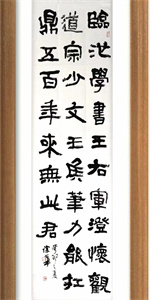 臨池學書王右軍澄懷觀
道宗少文王侯筆力能扛
鼎五百年來無此君